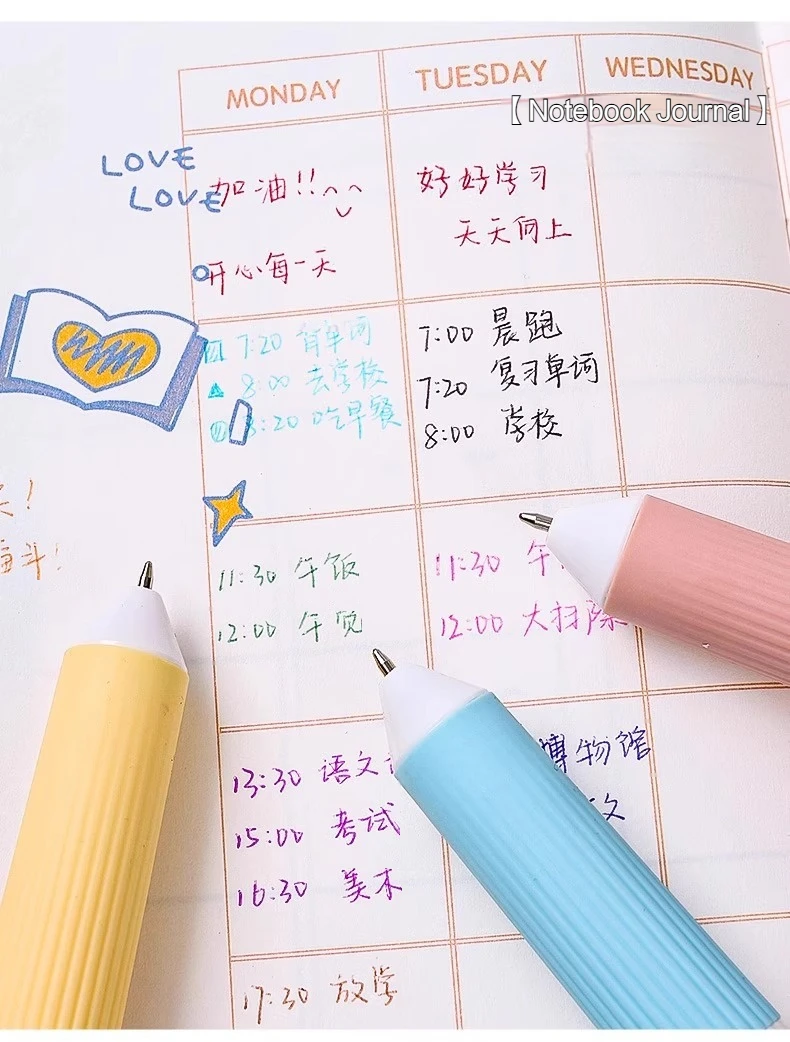 MONDAY
TUESDAY
WEDNESDAY
【Notebook Journal】
LOVE
LOVE
加油!!
开心每一天
好好学习
天天向上
7:20 背单词
8:00 去学校
8:20 吃早餐
7:00 晨跑
7:20 复习单词
8:00 学校
11:30 午饭
12:00 午觉
11:30 午
12:00 大扫除
奋斗!
13:30 语文
15:00 考试
16:30 美术
博物馆
17:30 放学